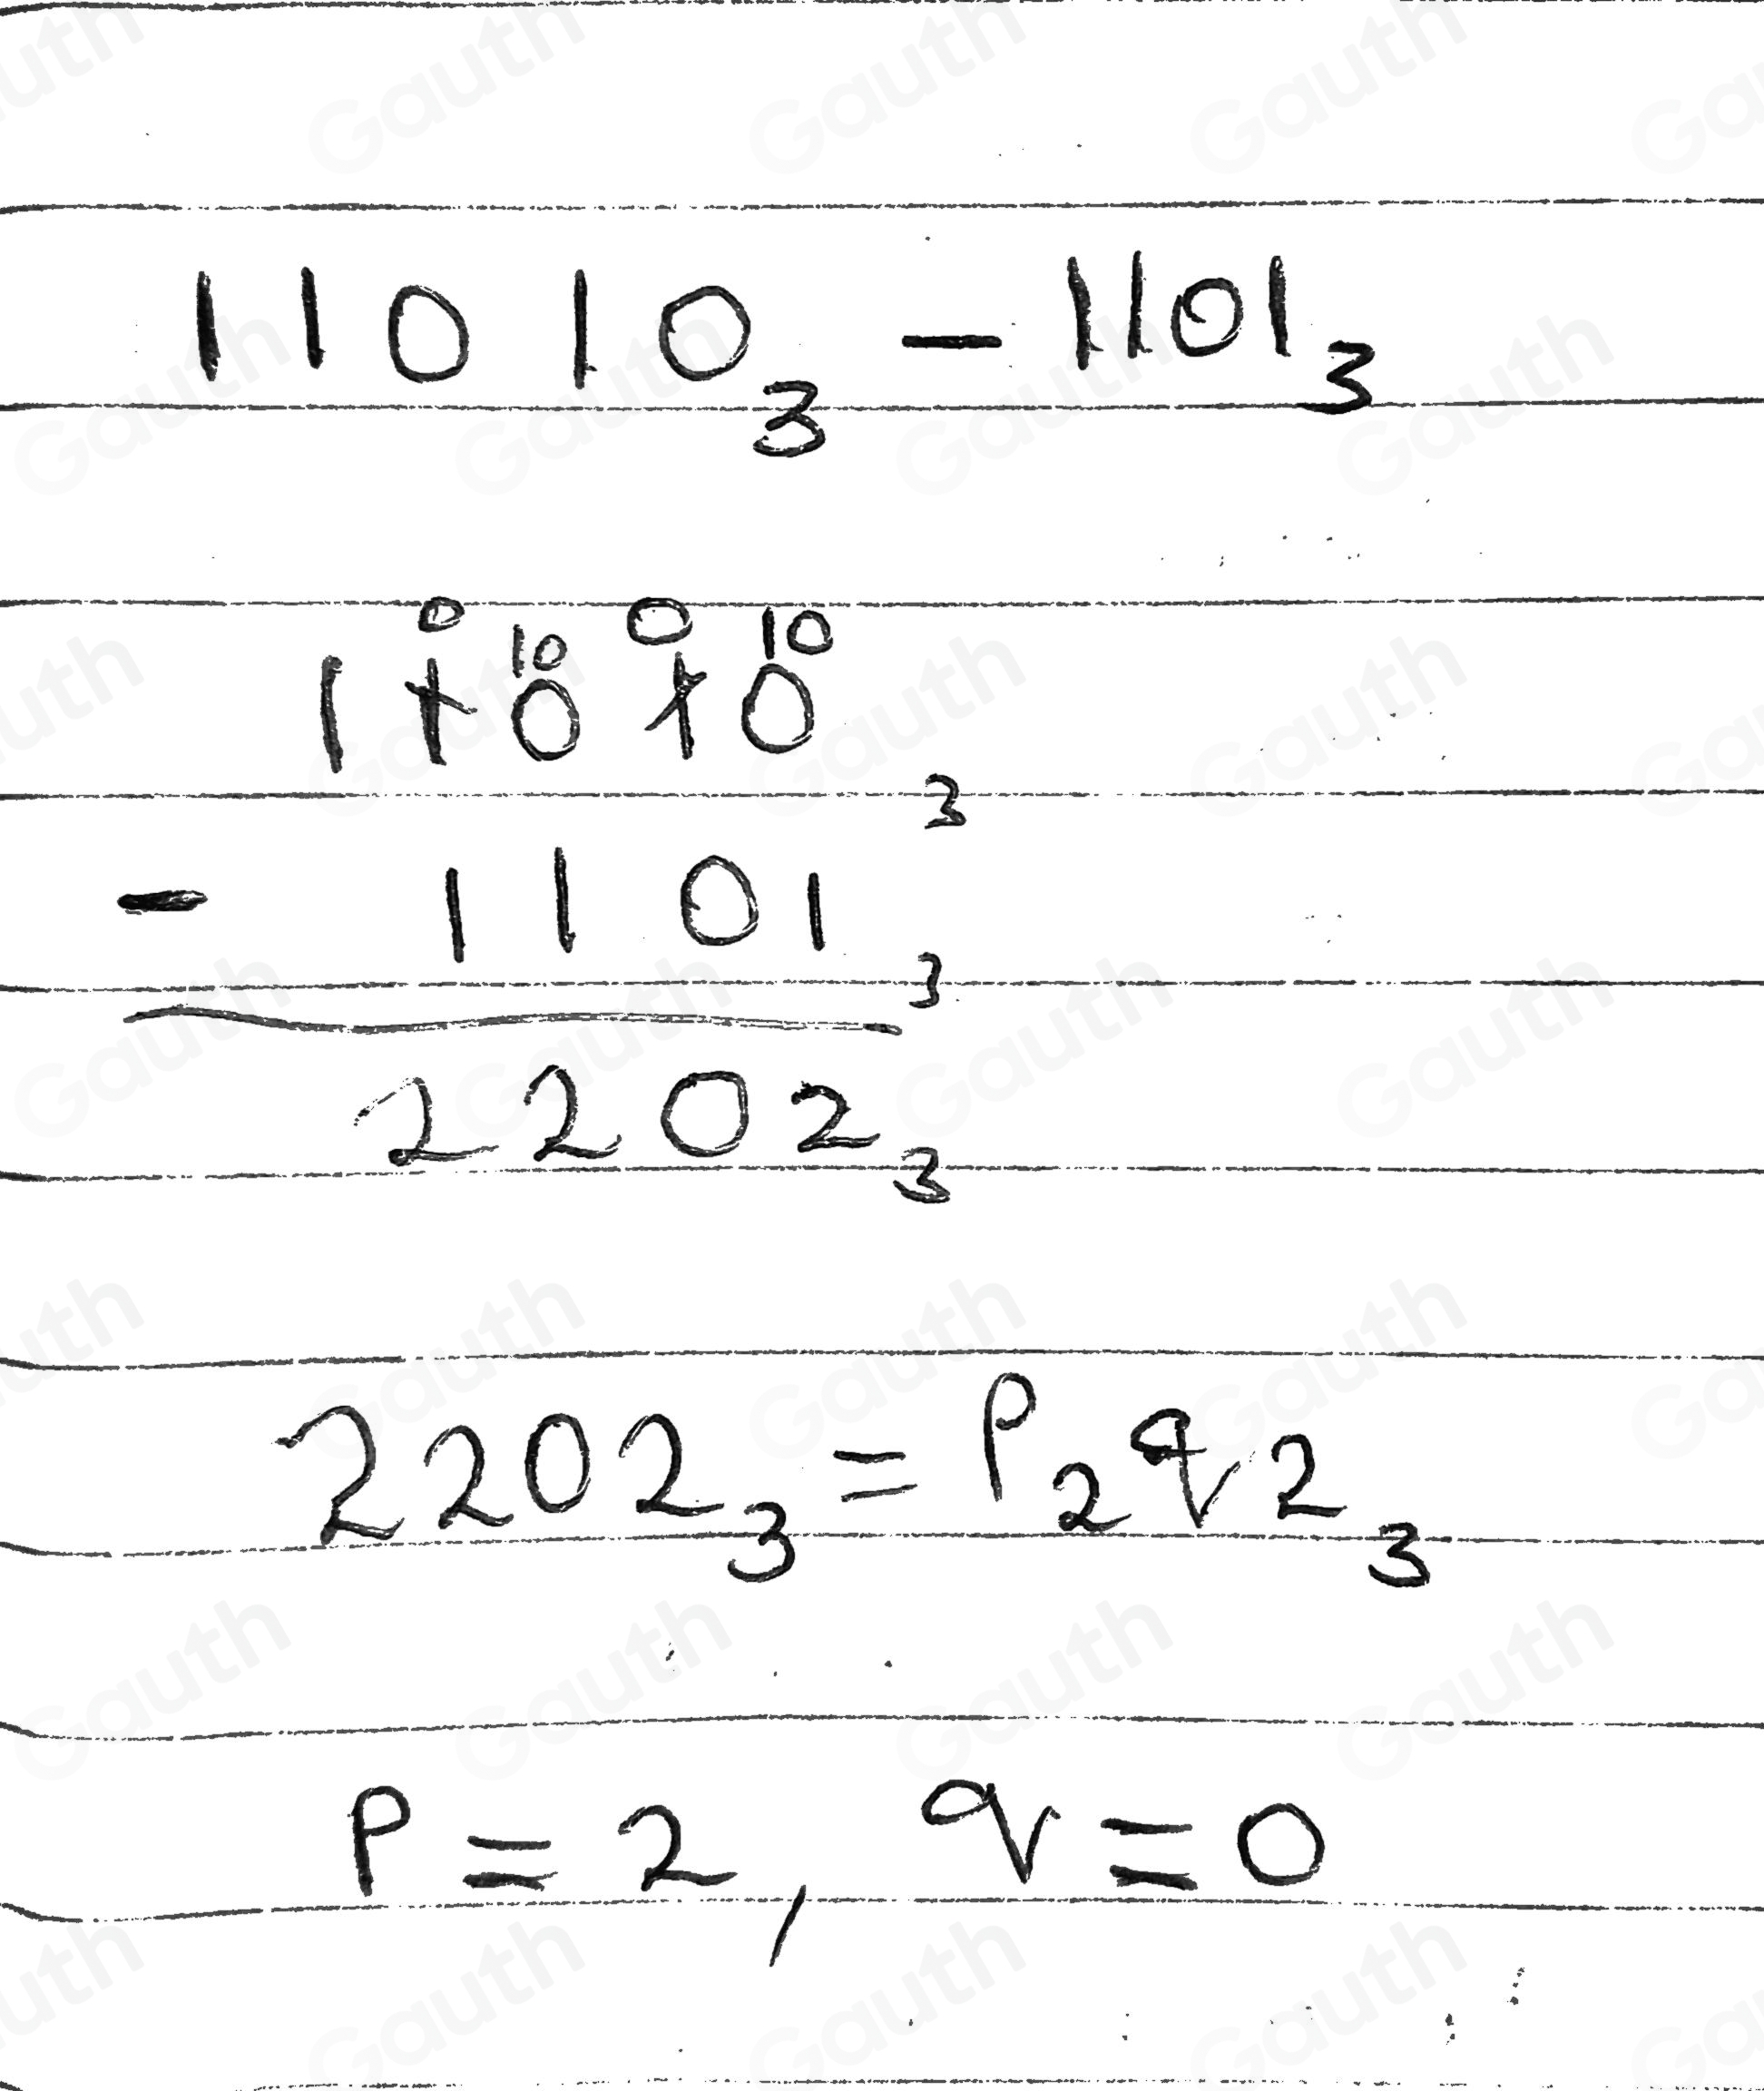 11010₃ - 1101₃
0 10 0 10
11010₃
- 1101₃
2202₃
2202₃ = P2q2₃
P = 2, q = 0